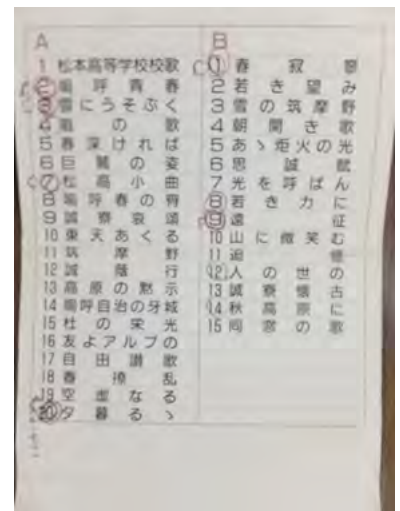 A
1 松本高等学校校歌
2 嗚呼青春
3 雲にうそぶく
4 嵐の歌
5 春深ければ
6 巨鷲の姿
7 松高小曲
8 嗚呼春の宵
9 誠寮哀頌
10 東天あくる
11 筑摩野
12 誠蔭行
13 高原の黙示
14 嗚呼自治の牙城
15 杜の栄光
16 友よアルプの
17 自由讃歌
18 春撩乱
19 空虚なる
20 夕暮るゝ
B
1 春寂寥
2 若き望み
3 雪の筑摩野
4 朝開き歌
5 あゝ炬火の光
6 思誠賦
7 光を呼ばん
8 若き力に
9 遠征
10 山に微笑む
11 追憶
12 人の世の
13 誠寮懐古
14 秋高原に
15 同窓の歌